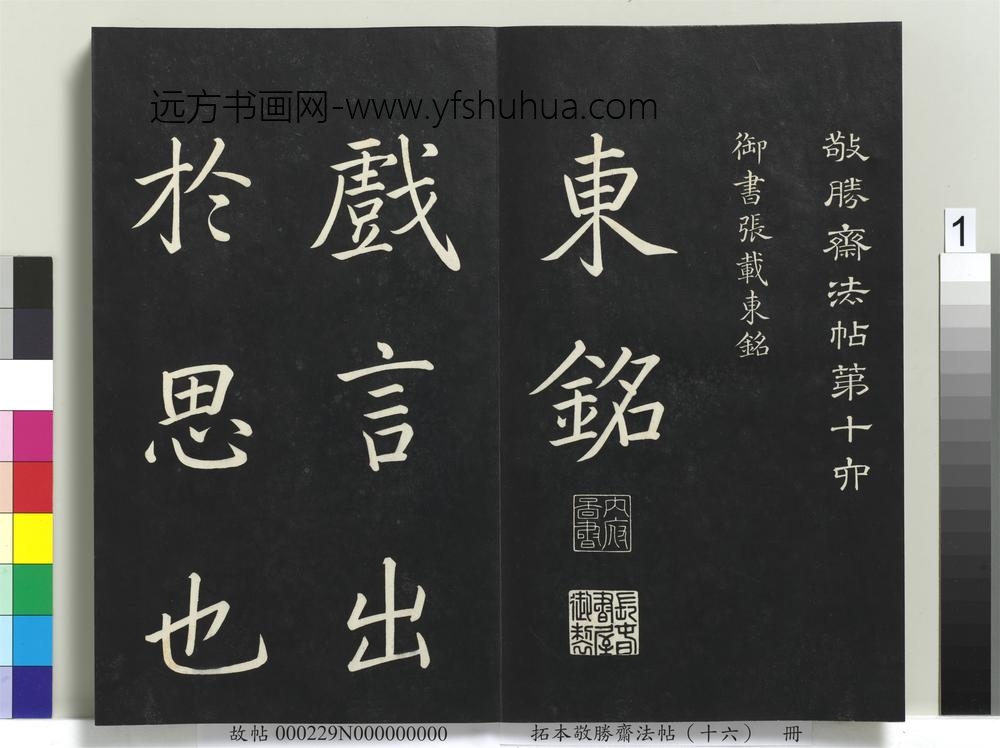 远方书画网-www.yfshuhua.com
敬勝齋法帖第十六
御書張載東銘
東銘
戲言出
於思也
1
故帖 000229N000000000
拓本敬勝齋法帖（十六） 冊